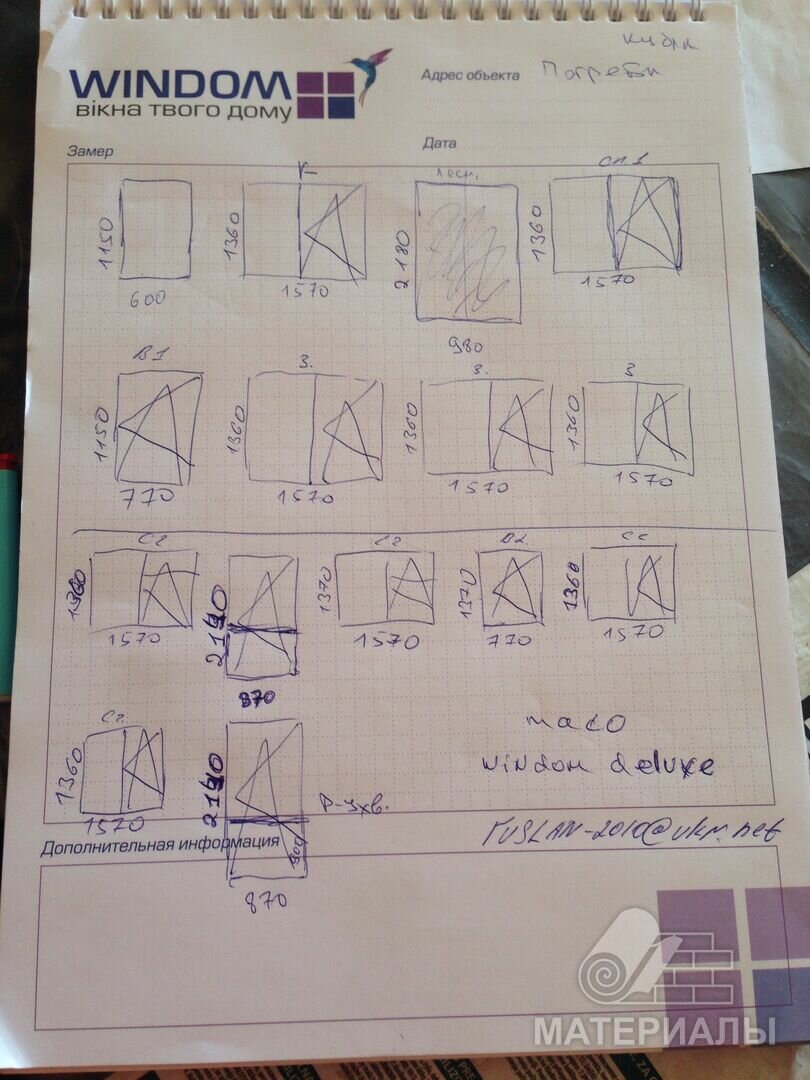 WINDOM
вікна твого дому
Адрес объекта Погребы
Замер
Дата
К
СП 1
1150
600
1360
1570
2180
980
1360
1570
В1
З.
З.
З
1150
770
1360
1570
1360
1570
1360
1570
С2
С2
В2
1360
1570
870
1370
1570
1370
770
1360
1570
1360
1570
900
870
maco
windom deluxe
Дополнительная информация
ruslan-2010@ukr.net
МАТЕРИАЛЫ